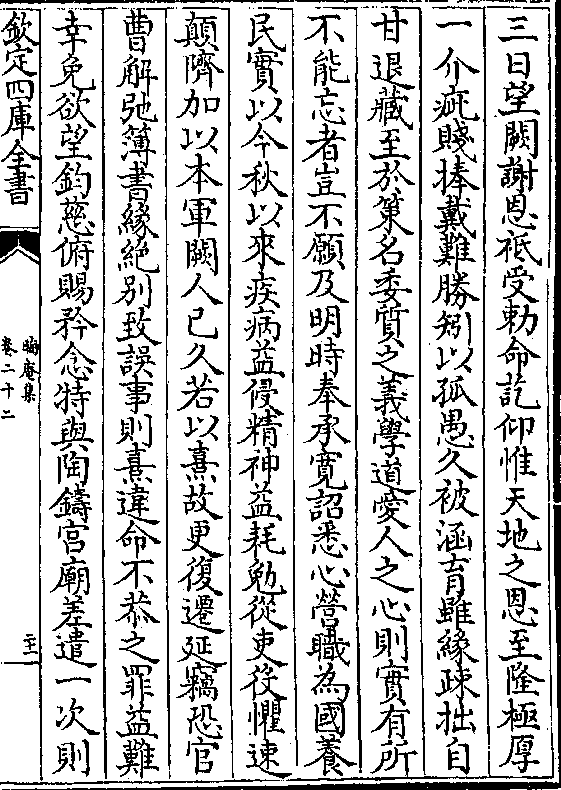 三日望闕謝恩祗受勅命訖仰惟天地之恩至隆極厚
一介疵賤捧戴難勝矧以孤愚久被涵育雖縁疎拙自
甘退藏至於策名委質之義學道愛人之心則實有所
不能忘者豈不願及明時奉承寛詔悉心營職為國養
民實以今秋以來疾病益侵精神益耗勉從吏役懼速
顛隮加以本軍闕人已久若以熹故更復遷延竊恐官
曹解弛簿書緣絶别致誤事則熹違命不恭之罪益難
幸免欲望鈞慈俯賜矜念特與陶鑄宫廟差遣一次則
欽定四庫全書
晦庵集
卷二十二